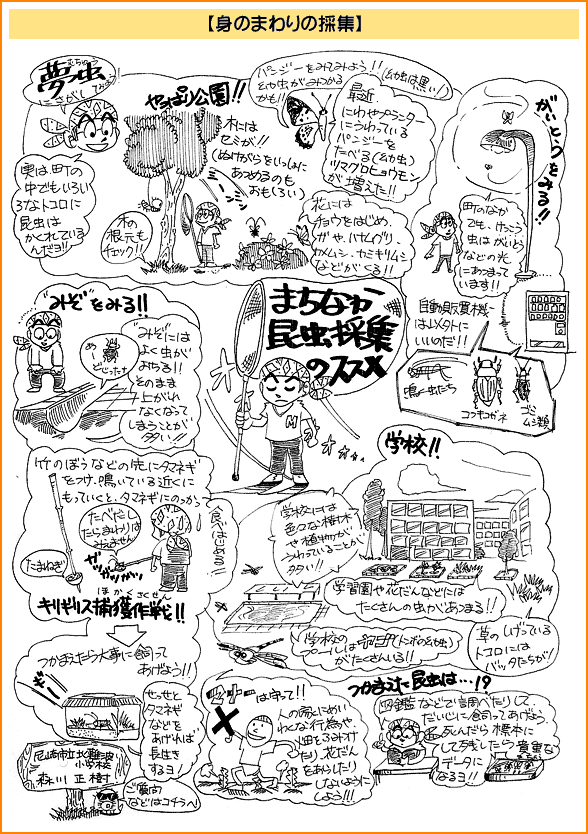 【身のまわりの採集】
夢っ虫
むちゅう
にさがしてみよう!
実は、町の
中でもいろい
ろなトコロに
昆虫は
かくれている
んだヨ!!
やっぱり公園!!
木には
セミが!!
(ぬけがらをいっしょに
あつめるのも
おもしろい)
木の
根元も
チェック!!
パンジーをみてみよう!!
幼虫がみつかる
かも!!
(幼虫は黒い!)
最近
にわやプランター
にうわっている
パンジーを
たべる(幼虫)
ツマグロヒョウモン
が増えた!!
花には
チョウをはじめ、
ガや、ハナムグリ、
カメムシ、カミキリムシ
などがくる!!
がいとうをみる!!
町のなか
でも、けっこう
虫はがいとう
などの光
にあつまって
います!!
自動販売機
は以外に
いいのだ!!
鳴く虫たち
コガネ
ゴミ
ムシ類
"みぞ"をみる!!
"みぞ"には
よく虫が
おちる!!
そのまま
上がれ
なくなって
しまうことが
多い!!
まちなか
昆虫採集
のススメ
M
竹のぼうなどの先にタマネギ
をつけ、鳴いている近くに
もっていくと、タマネギにのっかって
食べはじめる!!
たべだし
たらまわりは
みえません
たまねぎ
ほかくさくせん
キリギリス捕獲作戦!!
学校!!
学校には
色々な樹木
や植物が
うわっていることが
多い!!
学習園や花だんなどには
たくさんの虫があつまる!!
学校の
プールにはヤゴ(トンボの幼虫)
がたくさんいる!!
草のしげっている
トコロには
バッタたちが!
つかまえたら大事に飼って
あげよう!!
せっせと
タマネギ
などを
あげれば
長生き
するヨ!
尼崎市立北難波
小学校
森川 正樹
ご質問
などはコチラへ
マナーは守って!!
人の家にめい
わくな行為や、
畑をふみつけ
たり、花だん
をあらしたり
しないように
しよう!!
つかまえた昆虫は…!?
図鑑などで調べたりして、
だいじに飼ってあげよう。
死んだら標本に
してラベルしたら貴重な
データに
なるヨ!!